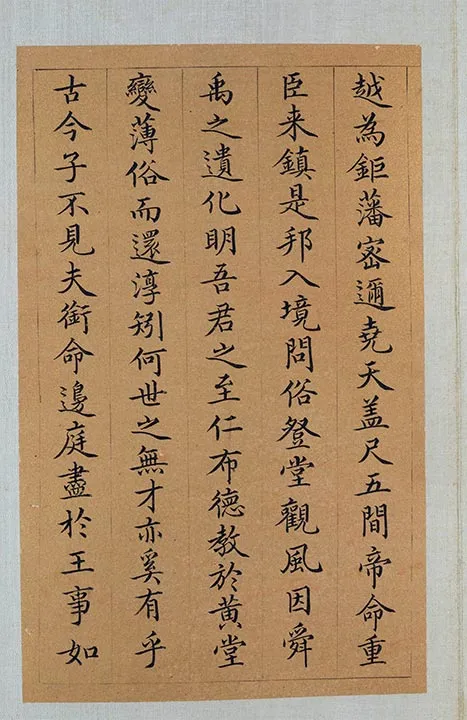 越為鉅藩密邇堯天盖尺五間帝命重
臣来鎮是邦入境問俗登堂觀風因舜
禹之遺化明吾君之至仁布德教於黄堂
變薄俗而還淳矧何世之無才亦奚有乎
古今子不見夫銜命邊庭盡於王事如